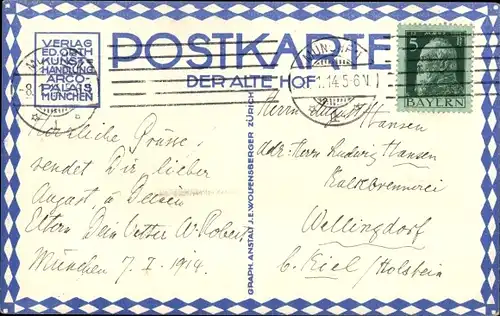 VERLAG
ED. GRAH
KUNST
HANDLUNG
ARCO-
PALAIS
MÜNCHEN
POSTKARTE
DER ALTE HOF
MÜNCHEN
5
BAYERN
Herzliche Grüsse,
sendet Dir lieber
August, u
Eltern Dein Vetter W. Robert
München 7. I. 1914.
GRAPH. ANSTALT J.E. WOLFENSBERGER ZÜRICH
Herrn August Hansen
adr: Herrn Ludwig Hansen
Kalkbrennerei
Wellingdorf
b. Kiel / Holstein